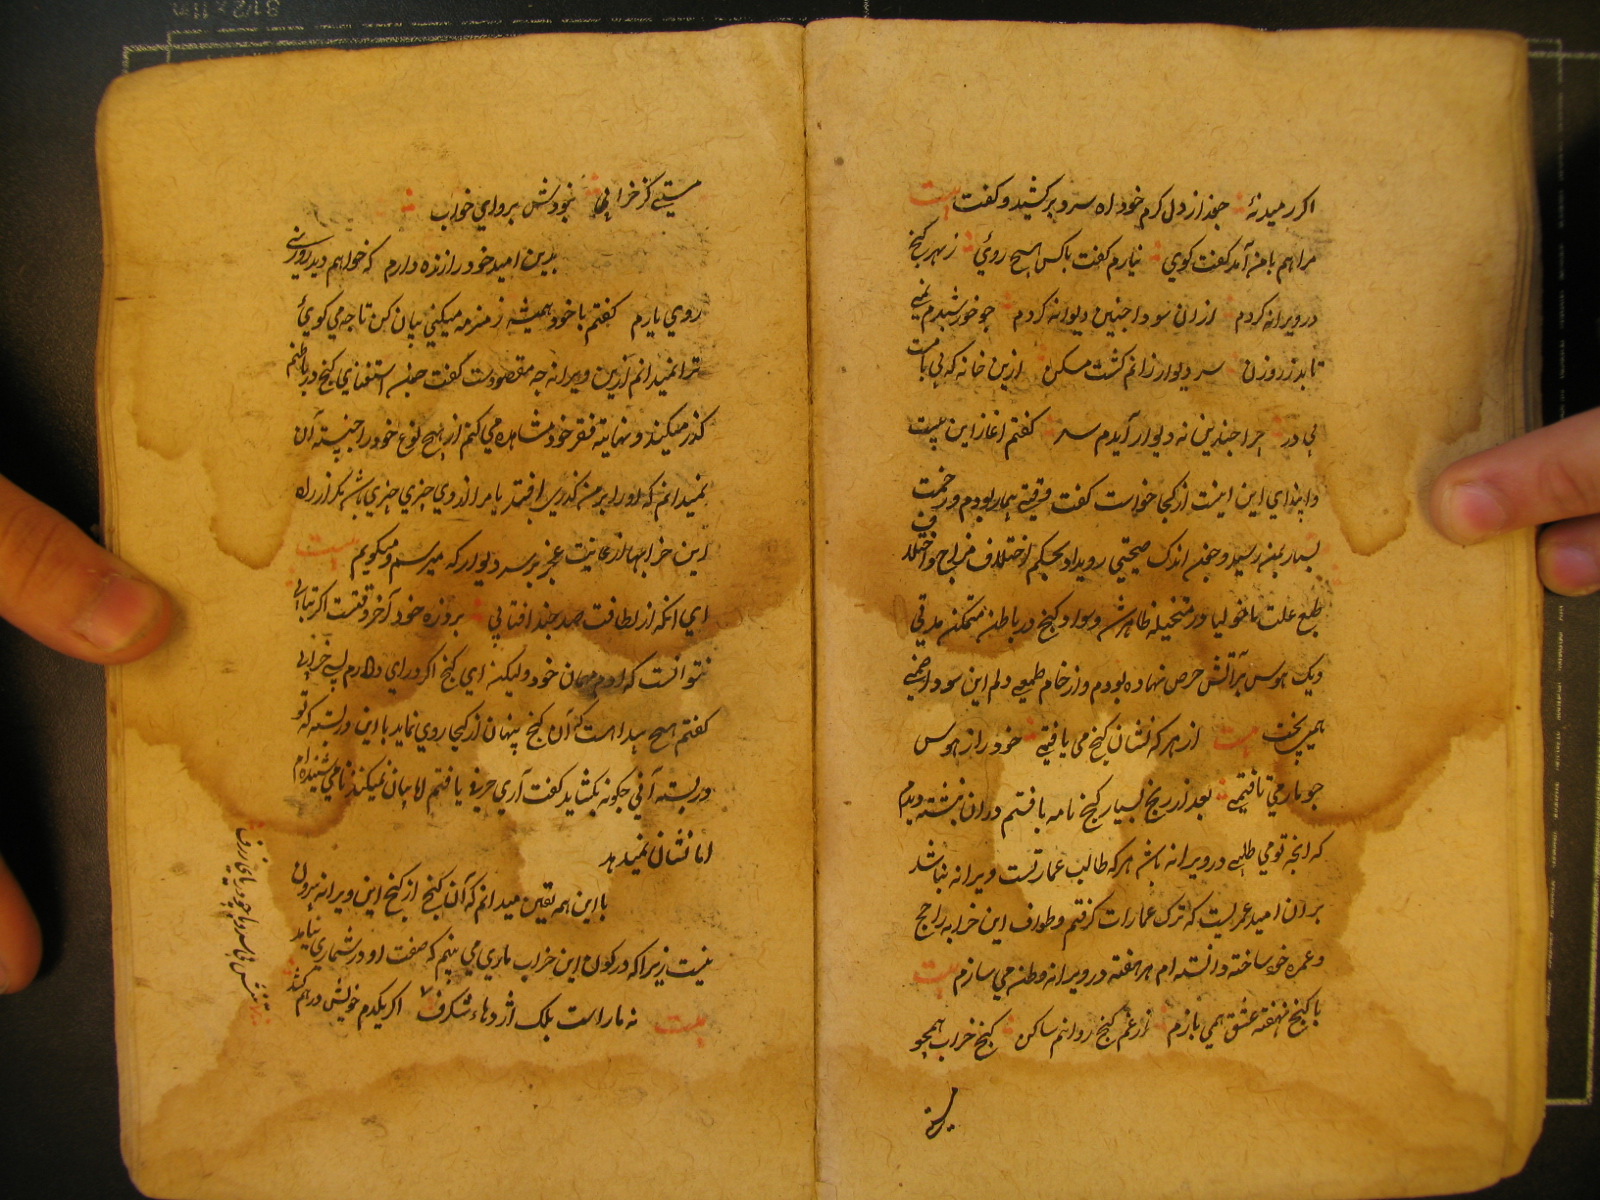 اکر رمیدنهٔ جغد از دل کرم خود اه سرد برکشید و کفت بیت
مرا هم بامن آمد کفت کوی نیارم کفت باکس هیچ روئی ز بهر کنج
در ویرانه کردم از ان سودا جنین دیوانه کردم جو خورشیدم نمی
تابد ز روزن سر دیوار زانم کشت مسکن ازین خانه که بی بامست
بی در جرا جندین نه دیوار آیدم سر کفتم اغاز این جیست
وابتدای این اینت از کجا خواست کفت وقتی بیمار بودم و زحمت
بسیار بمن رسید و جغد اندک صحتی روی داد بحکم اختلاف مزاج و اختلاف
طبع علت ماخولیا در متخیله ظاهر شد و سواد کنج در باطن متمکن مدتی
دیک هوس بر آتش حرص نهاده بودم و از خام طمعی دلم این سودا همی
می بخت بیت از هر که نشان کنج می یافتمی خود را ز هوس
جو مار می تافتمی بعد از رنج بسیار کنج نامه یافتم در ان نبشته دیدم
که انجه تو می طلبی در ویرانه باشد هر که طالب عمارتست ویرانه نباشد
بر ان امید عمریست که ترک عمارات کرفتم و طواف این خرابه را حج
و عمره خود ساخته و انسته ام هر هفته در ویرانه وطن می سازم بیت
با کنج نهفته عشق همی بازم از غم کنج روانم ساکن کنج خراب همجو
مستی کز خرابی نبودش پروای خواب
بدین امید خود را زنده دارم که خواهم دید روزی
روی یارم کفتم با خود همیشه زمزمه میکنی بیان کن تا جه می کوئی
ترا نمیدانم ازین ویرانه جه مقصودست کفت جغد استغنای کنج در باطنم
کذر میکند و نهایت فقر خود مشاهده می کنم از هیچ نوع خود را جنسته آن
نمیدانم که او را بر من کذری افتد یا مرا از وی جیزی جیزی باشد مکر از راه
این خرابیها از غایت عجز بر سر دیوار که میرسم و میکویم بیت
ای انکه از لطافت صد جند افتابی بروزه خود آخر وقتست اکر تتابی
نتوانست کرد مهمان خود ولیکن ای کنج اکر در ای دارم بسی خرابی
کفتم هیچ پیداست که آن کنج پنهان از کجا روی نماید با این در بسته که تو
در بسته آنی جکونه بکشاید کفت آری حرفی یافتم اما بیان نمیکند نامی شنیده ام
اما نشان نمیدهد
با این همه یقین میدانم که آن کنج از کنج این ویرانه بیرون
نیست زیرا که در کول این خراب ماری می بینم که صفت او در شماری نیاید
بیت نه مار است بلک اژدهاء شکرف اکر یکدم خویش در هم کشد